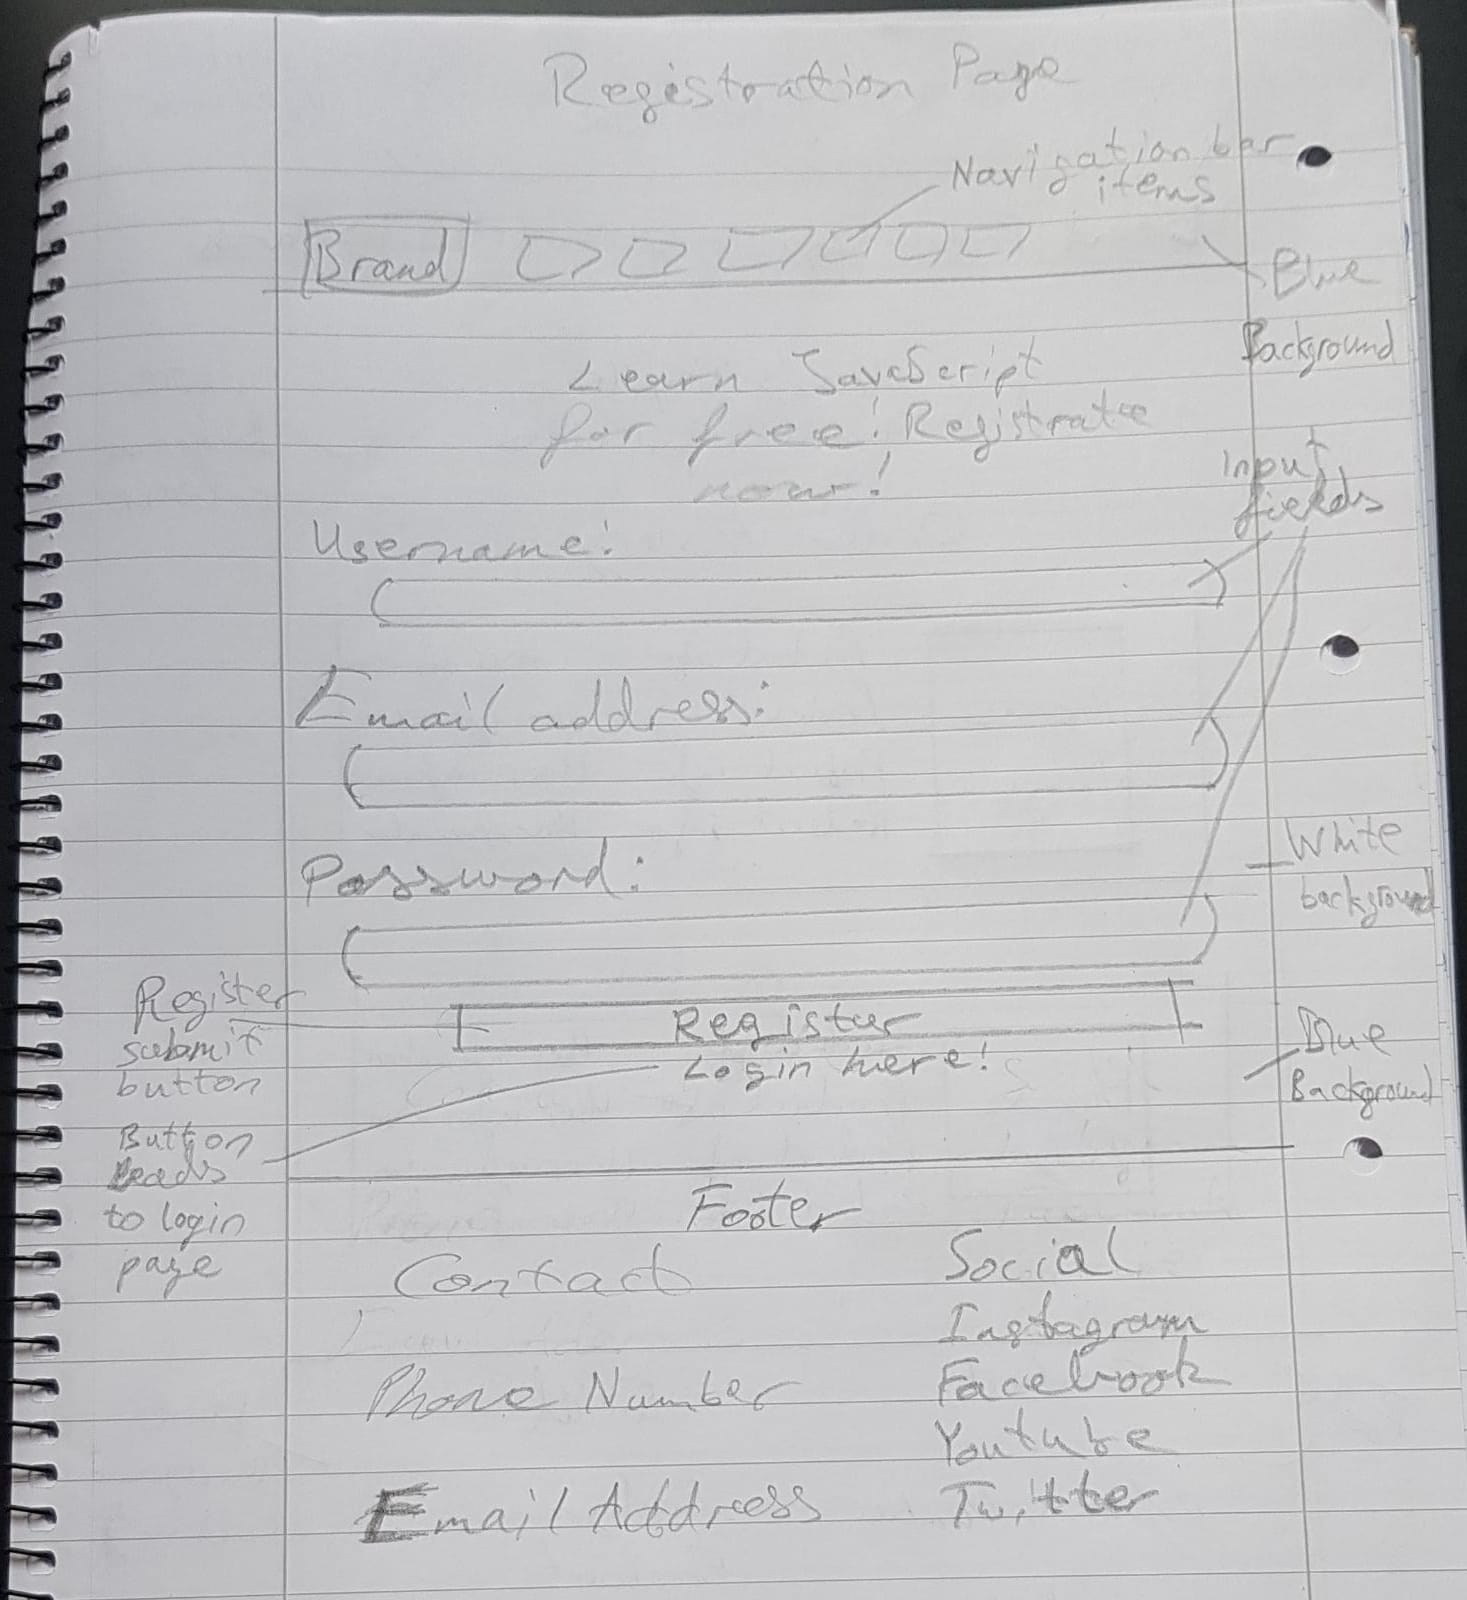 Registration Page
Navigation bar
items
Brand
Blue
Background
Learn JavaScript
for free! Registrate
now!
Input
fields
Username:
Email address:
White
background
Password:
Register
submit
button
Register
Login here!
Blue
Background
Button
Leads
to login
page
Footer
Contact
Social
Instagram
Phone Number
Facebook
Youtube
Email Address
Twitter